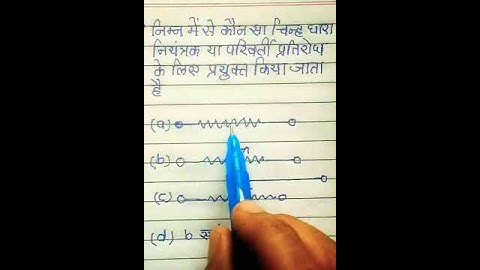 निम्न में से कौन सा चिन्ह धारा
नियंत्रक या परिवर्ती प्रतिरोध
के लिए प्रयुक्त किया जाता
है
(a)
(b)
(c)
(d) b